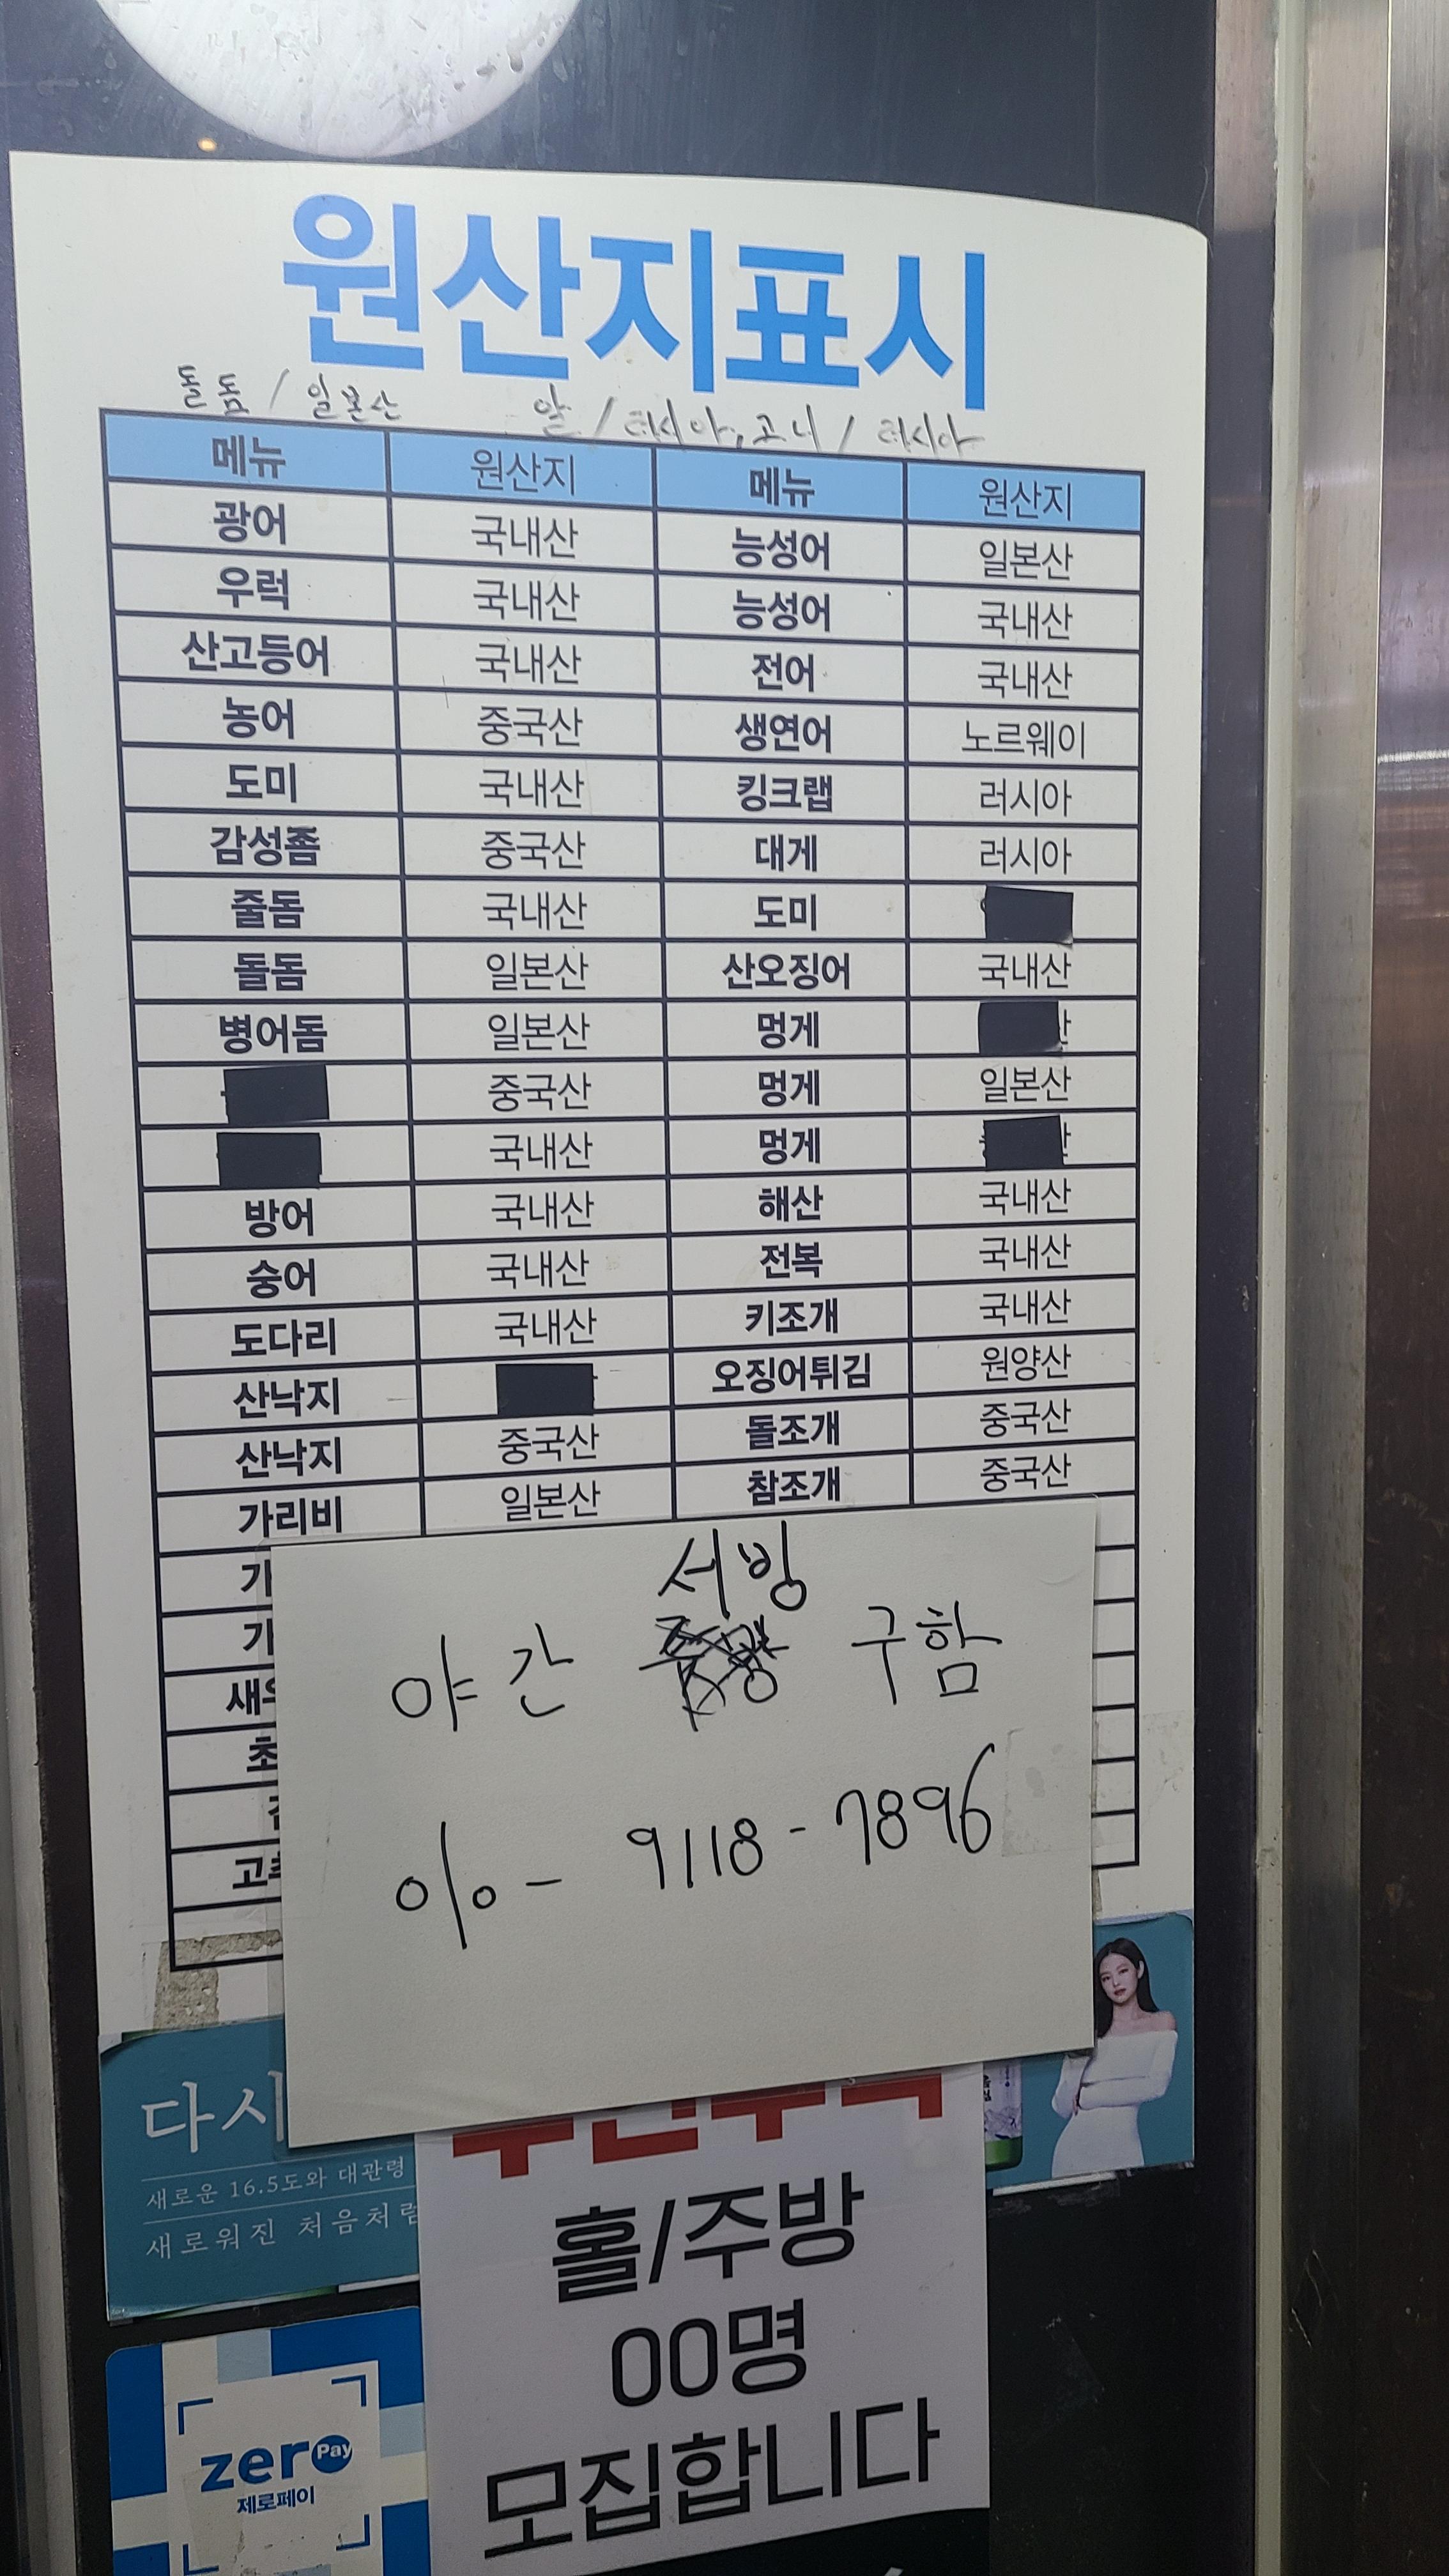 원산지표시
돌돔 / 일본산 알 / 러시아, 고니 / 러시아
메뉴 원산지 메뉴 원산지
광어 국내산 능성어 일본산
우럭 국내산 능성어 국내산
산고등어 국내산 전어 국내산
농어 중국산 생연어 노르웨이
도미 국내산 킹크랩 러시아
감성돔 중국산 대게 러시아
줄돔 국내산 도미
돌돔 일본산 산오징어 국내산
병어돔 일본산 멍게
중국산 멍게 일본산
국내산 멍게
방어 국내산 해산 국내산
숭어 국내산 전복 국내산
도다리 국내산 키조개 국내산
산낙지 오징어튀김 원양산
산낙지 중국산 돌조개 중국산
가리비 일본산 참조개 중국산
서빙
야간 구함
010 - 9118 - 7896
다시
새로운 16.5도와 대관령
새로워진 처음처럼
홀/주방
00명
모집합니다
zero Pay
제로페이